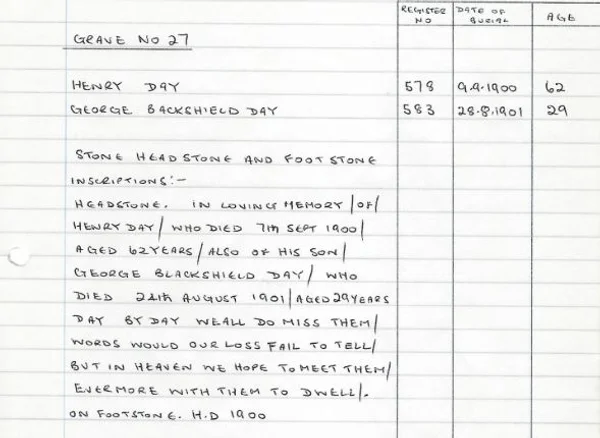 REGISTER NO DATE OF BURIAL AGE
GRAVE NO 27
HENRY DAY 578 9.9.1900 62
GEORGE BACKSHIELD DAY 583 28.8.1901 29
STONE HEADSTONE AND FOOTSTONE
INSCRIPTIONS:-
HEADSTONE. IN LOVING MEMORY/OF/
HENRY DAY/ WHO DIED 7TH SEPT 1900/
AGED 62 YEARS/ ALSO OF HIS SON/
GEORGE BLACKSHIELD DAY/ WHO
DIED 24th AUGUST 1901/AGED 29 YEARS
DAY BY DAY WE ALL DO MISS THEM/
WORDS WOULD OUR LOSS FAIL TO TELL/
BUT IN HEAVEN WE HOPE TO MEET THEM/
EVERMORE WITH THEM TO DWELL/.
ON FOOTSTONE. H.D 1900